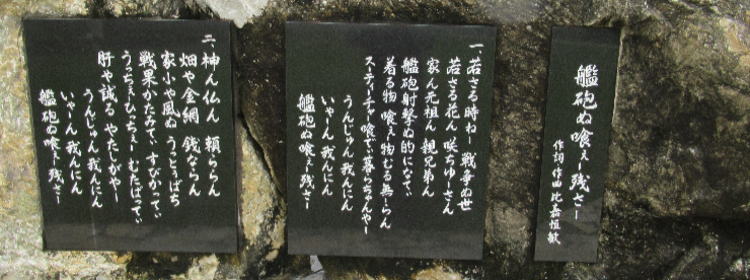 艦砲ぬ喰ぇー残さー
作詞・作曲 比嘉恒敏
一、若さる時ねー 戦争ぬ世
若さる花ん 咲ちゆーさん
家ん元祖ん 親兄弟ん
艦砲射撃ぬ的になてぃ
着る物 喰ぇー物むる無ーらん
スーティーチャー喰でぃ暮らちゃんやー
うんじゅん我んにん
いゃーん 我んにん
艦砲ぬ喰ぇー残さー
二、神ん仏ん 頼ららん
畑や金網 銭ならん
家小や風ぬ うっとぅばち
戦果かたみてぃ すびかってぃ
うっちぇーひっちぇー むたばってぃ
肝や誠る やたしがやー
うんじゅん 我んにん
いゃーん 我んにん
艦砲ぬ喰ぇー残さー